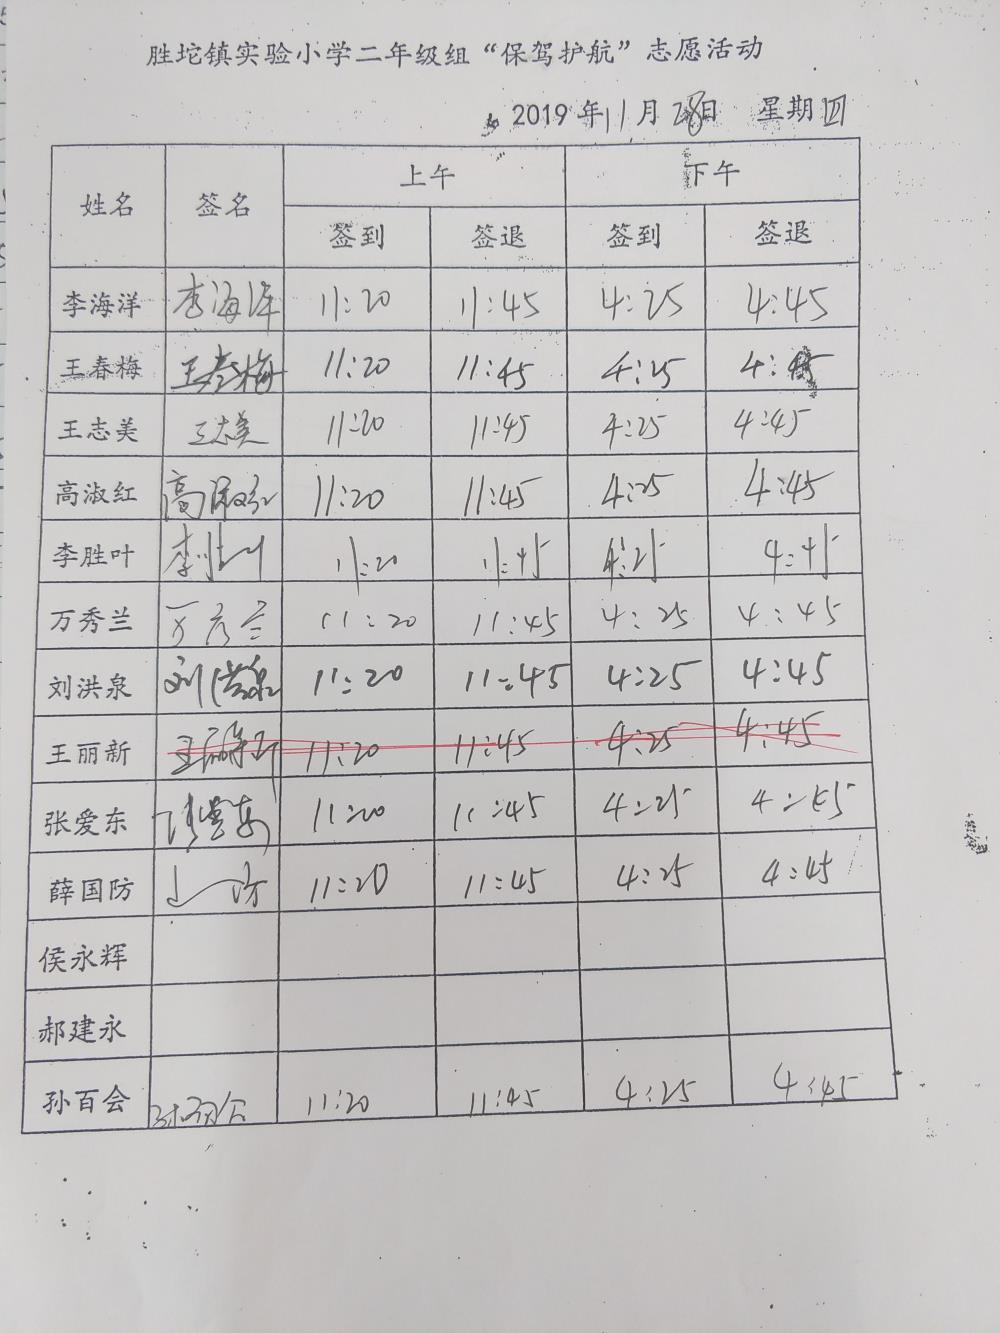 胜坨镇实验小学二年级组“保驾护航”志愿活动
2019年11月28日 星期四
姓名 签名 上午 下午
签到 签退 签到 签退
李海洋 李海洋 11:20 11:45 4:25 4:45
王春梅 王春梅 11:20 11:45 4:25 4:45
王志美 王志美 11:20 11:45 4:25 4:45
高淑红 高淑红 11:20 11:45 4:25 4:45
李胜叶 李胜叶 11:20 11:45 4:25 4:45
万秀兰 万秀兰 11:20 11:45 4:25 4:45
刘洪泉 刘洪泉 11:20 11:45 4:25 4:45
王丽新 王丽新 11:20 11:45 4:25 4:45
张爱东 张爱东 11:20 11:45 4:25 4:45
薛国防 11:20 11:45 4:25 4:45
侯永辉
郝建永
孙百会 孙百会 11:20 11:45 4:25 4:45